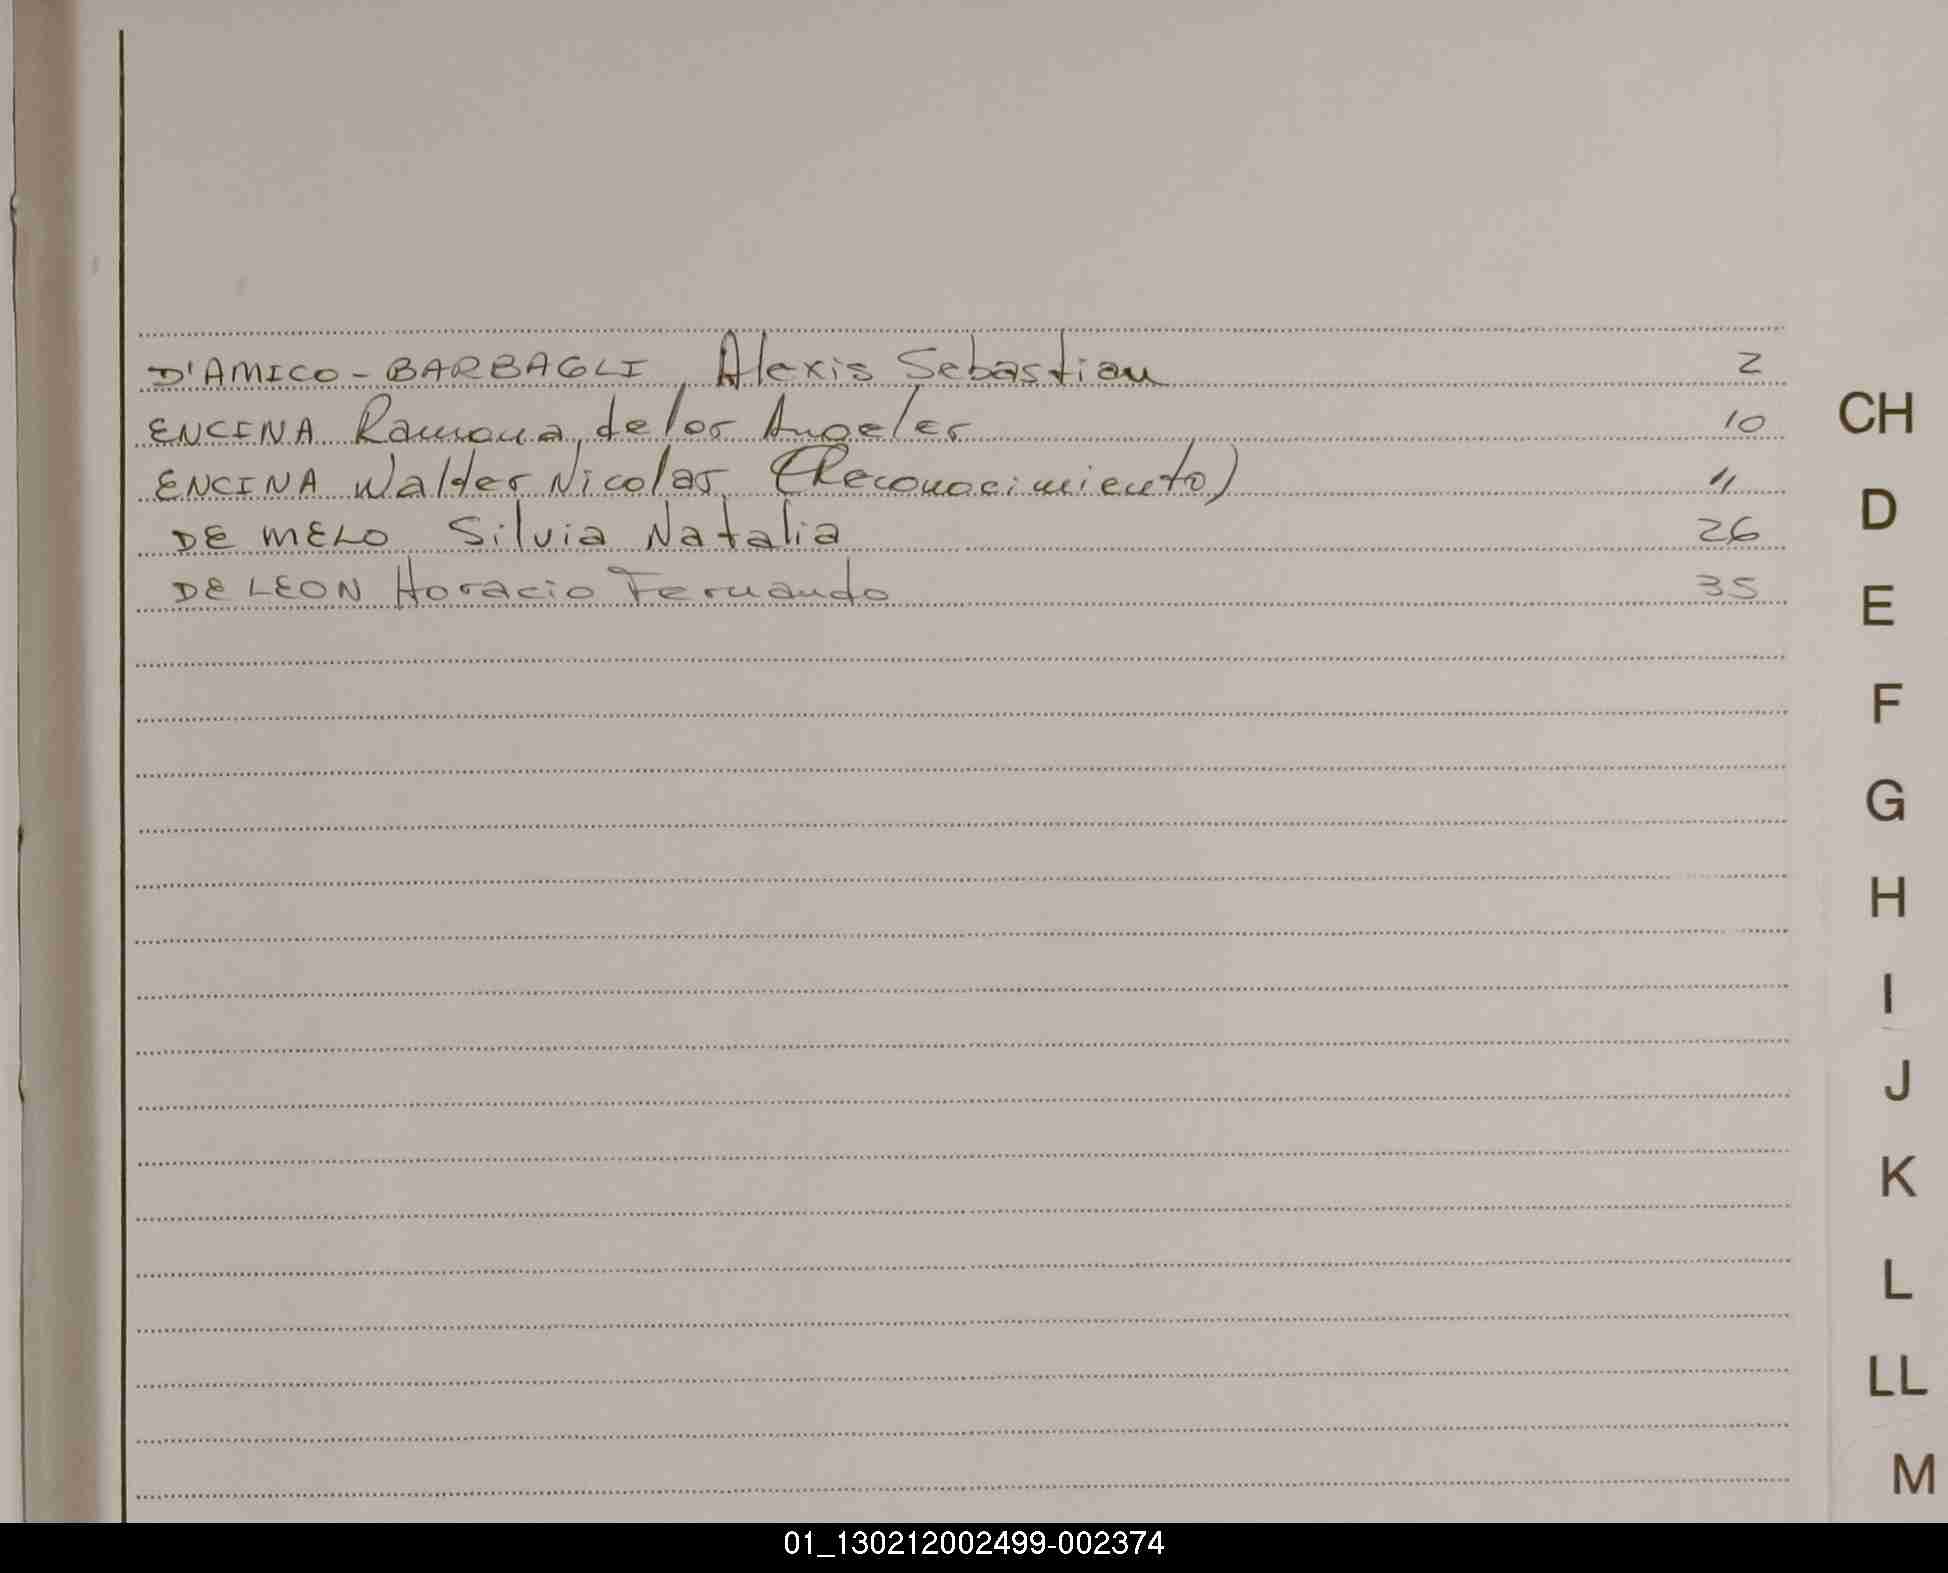 D'AMICO - BARBAGLI, Alexis Sebastian 2
ENCINA Ramona de los Angeles 10
ENCINA Walter Nicolas (Reconocimiento) "
DE MELO Silvia Natalia 26
DE LEON Horacio Fernando 35
CH
D
E
F
G
H
I
J
K
L
LL
M
01_130212002499-002374